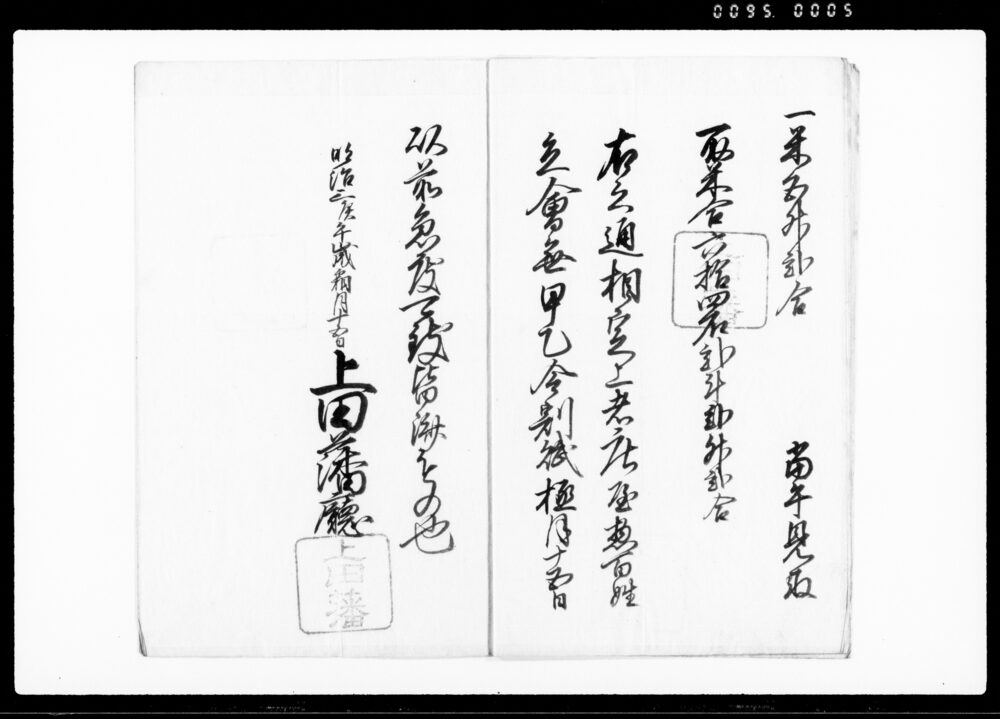 0095. 0005
一米五升弐合
当午見取
取米合六拾四石弐斗弐升弐合
右之通相定上者庄屋惣百姓
立會無甲乙令割賦極月十五日
以前急度可致皆済もの也
明治三庚午歳霜月十五日
上田藩廳
上田藩